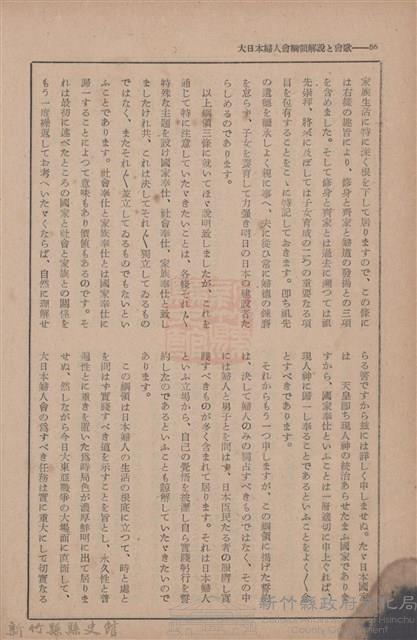 大日本婦人會綱領解説と會歌――86
家族生活に特に深く根を下して居りますので、この條に
は右様の趣旨により、修身と齊家と婦道の發揚との三項
を含めました。そして修身と齊家とは過去に溯つては祖
先崇拜、將來に及ぼしては子女育成の二つの重要なる項
目を包有することをこゝに特記しておきます。即ち祖先
の遺德を繼承しよく親に事へ、夫に從ひ常に婦德の錬磨
を怠らず、子女を養育して力强き明日の日本の建設者た
らしめるのであります。
以上綱領三條に就いてほゞ說明致しましたが、これを
通じて特に注意していたゞきたいことは、各條それ〲
特殊な主題を設け國家奉仕、社會奉仕、家族奉仕と致し
ましたけれ共、これは決してそれ〲獨立してゐるもの
ではなく、またそれ〲並立してゐるものでもないとい
ふことであります。社會奉仕と家族奉仕とは國家奉仕に
歸一することによつて意味もあり價値もあるのです。そ
れは最初に述べたところの國家と社會と家族との關係を
もう一度繰返してお考へいたゞくならば、自然に理解せ
らる筈ですから玆には詳しく申しませぬ。たゞ日本國家
は　天皇即ち現人神の統治あらせたまふ國家でありま
すから、國家奉仕といふことは一層適切に申上ぐれば、
現人神に歸一し奉ることであるといふことをよく〲
とすべきであります。
それからもう一つ申しますが、この綱領に揭げた誓約
は、決して婦人のみの獨占すべきものではなく、その中
には婦人と男子とを問はず、日本臣民たる者の服膺し實
踐すべきものが多く含まれて居ります。それは日本婦人
といふ立場から、自己の覺悟を披瀝し自ら實踐躬行を誓
約したのであるといふことも諒解していたゞきたいので
あります。
この綱領は日本婦人の生活の根底に立つて、時と處と
を問はず實踐すべき道を示すことを旨とし、永久性と普
遍性とに重きを置いた爲時局色が濃厚鮮明に出て居りま
せぬ、然しながら今日大東亞戰爭の大場面に直面して、
大日本婦人會の爲すべき任務は實に重大にして切實なる
新竹縣縣史館
新竹縣政府文化局